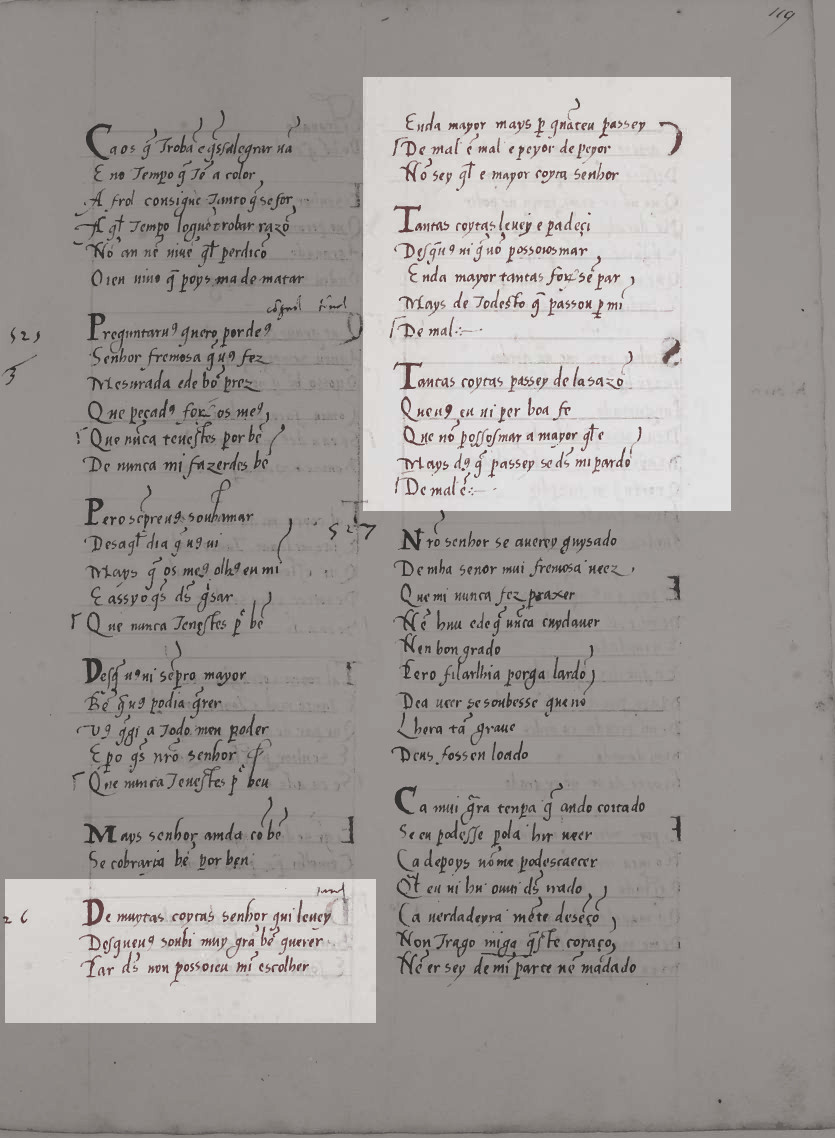 119
Ca os q̃ Trobã e q̃ssalegrar uã
E no Tempo q̃ Tẽ a color
A frol consigue Tanto q̃ sefor
A q̃l Tempo loguẽ trobar razõ
Nõ an nẽ niuẽ q̃l perdicõ
Oieu uiuo q̃ poys ma de matar
525
Preguntaruꝯ quero por deꝯ
Senhor fremosa q̃ uꝯ fez
Mesurada e de bõ prez
Que pecadꝯ forõ os meꝯ
Que nũca teuestes por bẽ
De nunca mi fazerdes bẽ
Pero sẽpreuꝯ soubamar
Des aq̃l dia q̃ uꝯ ui
Mays q̃ os meꝯ olhꝯ eu mi
E assyo q̃s ds̃ g̃sar
Que nunca Teuestes p̃ bẽ
Desq̃ uꝯ ui sẽpro mayor
Bẽ q̃ uꝯ podia q̃rer
Vꝯ q̃gi a Todo meu poder
E p̃o q̃s nr̃o senhor
Que nunca Teuestes p̃ beu
Mays senhor amda cõ bẽ
Se cobraria bẽ por ben
26
De muytas coytas senhor qui leuey
Desqueuꝯ soubi muy grã bẽ querer
Par ds̃ non possoieu mi escolher
Enda mayor mays p̃ quãteu passey
De mal ẽ mal e peyor de peyor
Nõ sey q̃l e mayor coyta senhor
Tantas coytas leuey e padeçi
Desq̃ uꝯ ui q̃ nõ possoiosmar
Enda mayor tantas forõ sẽ par
Mays de Todesto q̃ passou p̃ mi
De mal
Tantas coytas passey de la sazõ
Queuꝯ eu ui per boa fe
Que nõ possosmar a mayor q̃l e
Mays dꝯ q̃ passey se ds̃ mi pardõ
De mal ẽ
527
Nr̃o senhor se auerey guysado
De mha senor mui fremosa ueez
Que mi nunca fez praxer
Nẽ huu ede q̃ ũnca cuydauer
Nen bon grado
Pero filarlhia porga lardõ
Dea ueer se soubesse que nõ
Lhera tã graue
Deus fossen loado
Ca mui g̃ra tenpa q̃ ando coitado
Se eu podesse pola hir ueer
Ca depoys nõme podescaecer
Q̃l eu ui hu ouui ds̃ irado
Ca uerdadeyra mẽte deseçõ
Non Trago migo q̃ste coraçõ
Nẽ er sey de mi parte nẽ mãdado